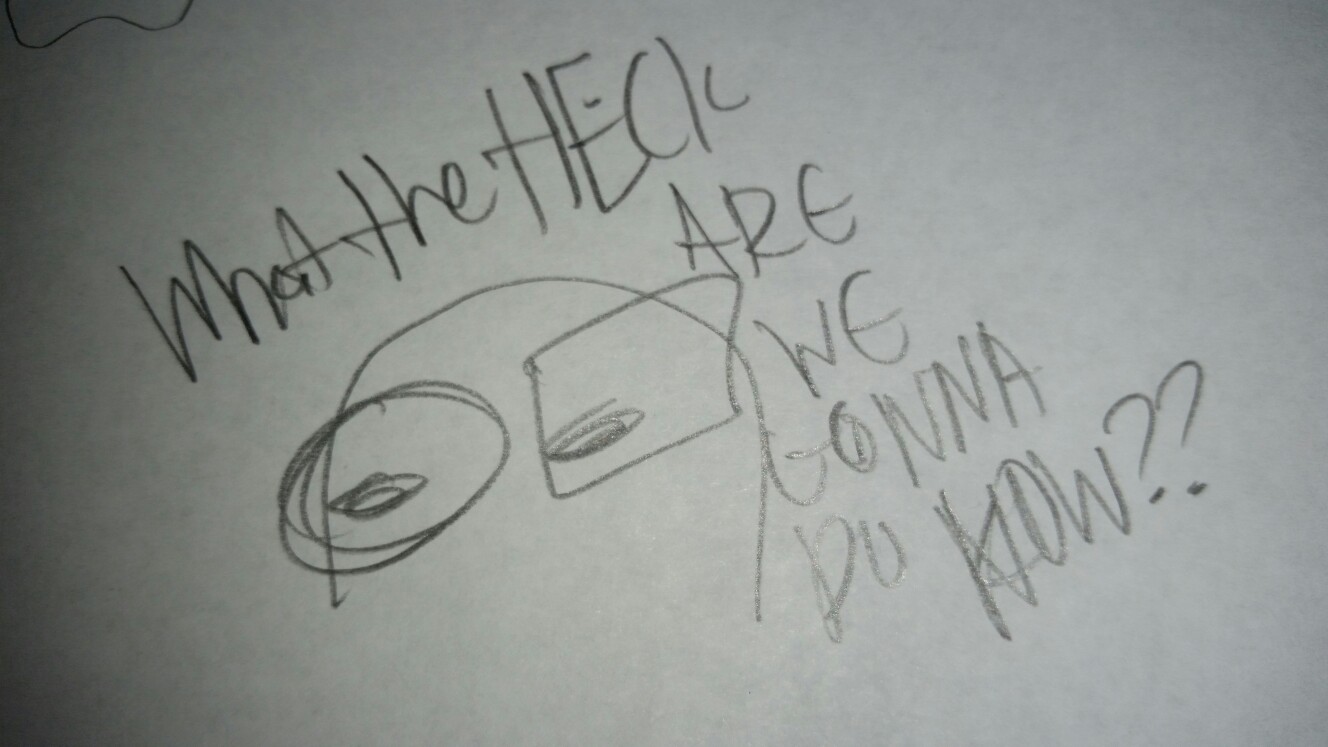 What the HECK
ARE
WE
GONNA
DO NOW??